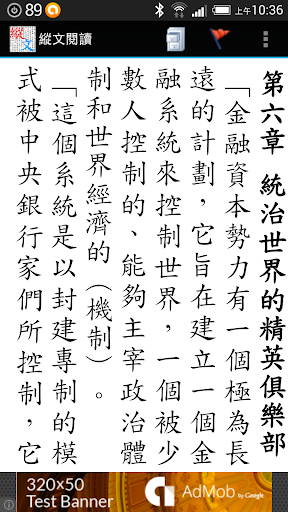 89
上午10:36
縱文
縱文閱讀
第六章 統治世界的精英俱樂部
「金融資本勢力有一個極為長
遠的計劃，它旨在建立一個金
融系統來控制世界，一個被少
數人控制的、能夠主宰政治體
制和世界經濟的（機制）。
「這個系統是以封建專制的模
式被中央銀行家們所控制，它
320×50
Test Banner
AdMob by Google